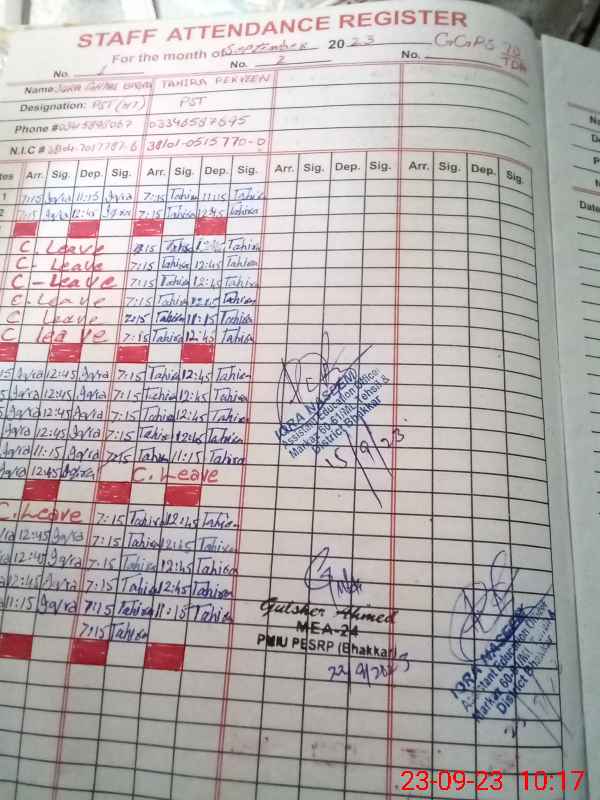 STAFF ATTENDANCE REGISTER
For the month of September 2023 GGPS
No. 1 No. 2 No.
Name: TAHIRA PERVEEN
Designation: PST PST
Phone # 03346587695
N.I.C # 38101-0515770-0
Arr. Sig. Dep. Sig. Arr. Sig. Dep. Sig. Arr. Sig. Dep. Sig. Arr. Sig. Dep. Sig.
1 7:15 Iqra 11:15 Iqra 7:15 Tahira 11:15 Tahira
2 7:15 Iqra 12:45 Iqra 7:15 Tahira 12:45 Tahira
C. Leave 7:15 Tahira Tahira
C. Leave 7:15 Tahira 12:45 Tahira
C - Leave 7:15 Tahira 12:45 Tahira
C. Leave 7:15 Tahira 12:45 Tahira
C Leave 7:15 Tahira 11:15 Tahira
C leave 7:15 Tahira 12:45 Tahira
Iqra 12:45 Iqra 7:15 Tahira 12:45 Tahira
Iqra 12:45 Iqra 7:15 Tahira 12:45 Tahira
Iqra 12:45 Iqra 7:15 Tahira 12:45 Tahira
Iqra 12:45 Iqra 7:15 Tahira 12:45 Tahira
Iqra 11:15 Iqra 7:15 Tahira 11:15 Tahira
Iqra 12:45 Iqra C. Leave
C. Leave 7:15 Tahira 12:45 Tahira
Iqra 12:45 Iqra 7:15 Tahira 12:45 Tahira
Iqra 12:45 Iqra 7:15 Tahira 12:45 Tahira
Iqra 12:45 Iqra 7:15 Tahira 12:45 Tahira
Iqra 11:15 Iqra 7:15 Tahira 11:15 Tahira
7:15 Tahira
IQRA NASEEM
Assistant Education Officer
Markaz 60-61/ML Tehsil &
District Bhakkar
15/9/23
Gulsher Ahmed
MEA-24
PMIU PESRP (Bhakkar)
22/9/2023
IQRA NASEEM
Assistant Education Officer
Markaz 60-61/ML
District Bhakkar
23-09-23 10:17